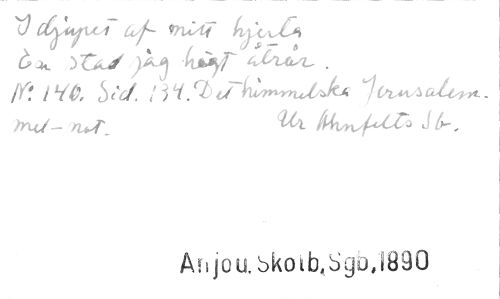 I djupet af mitt hjerta
En stad jag högt åtrår.
No: 140. Sid. 134. Det himmelska Jerusalem.
mel-not. Ur Ahnfelts Sb.
Anjou. Skolb, Sgb, 1890